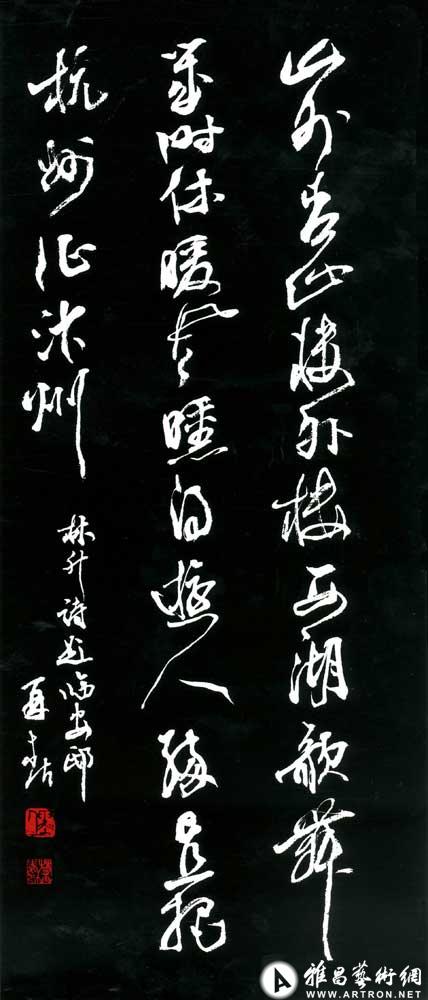 山外青山楼外楼西湖歌舞
幾时休暖风曛得遊人醉直把
杭州作汴州
林升詩题临安邸
雅昌藝術網
WWW.ARTRON.NET